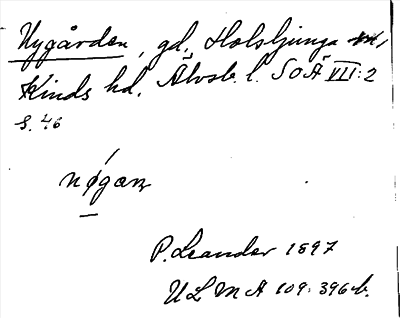 Nygården, gd., Holsljunga sn,
Kinds hd. Älvsb. l. SOÄ VII:2
s. 46
nǿgæn
P. Leander 1897
ULMA 109:396 b.